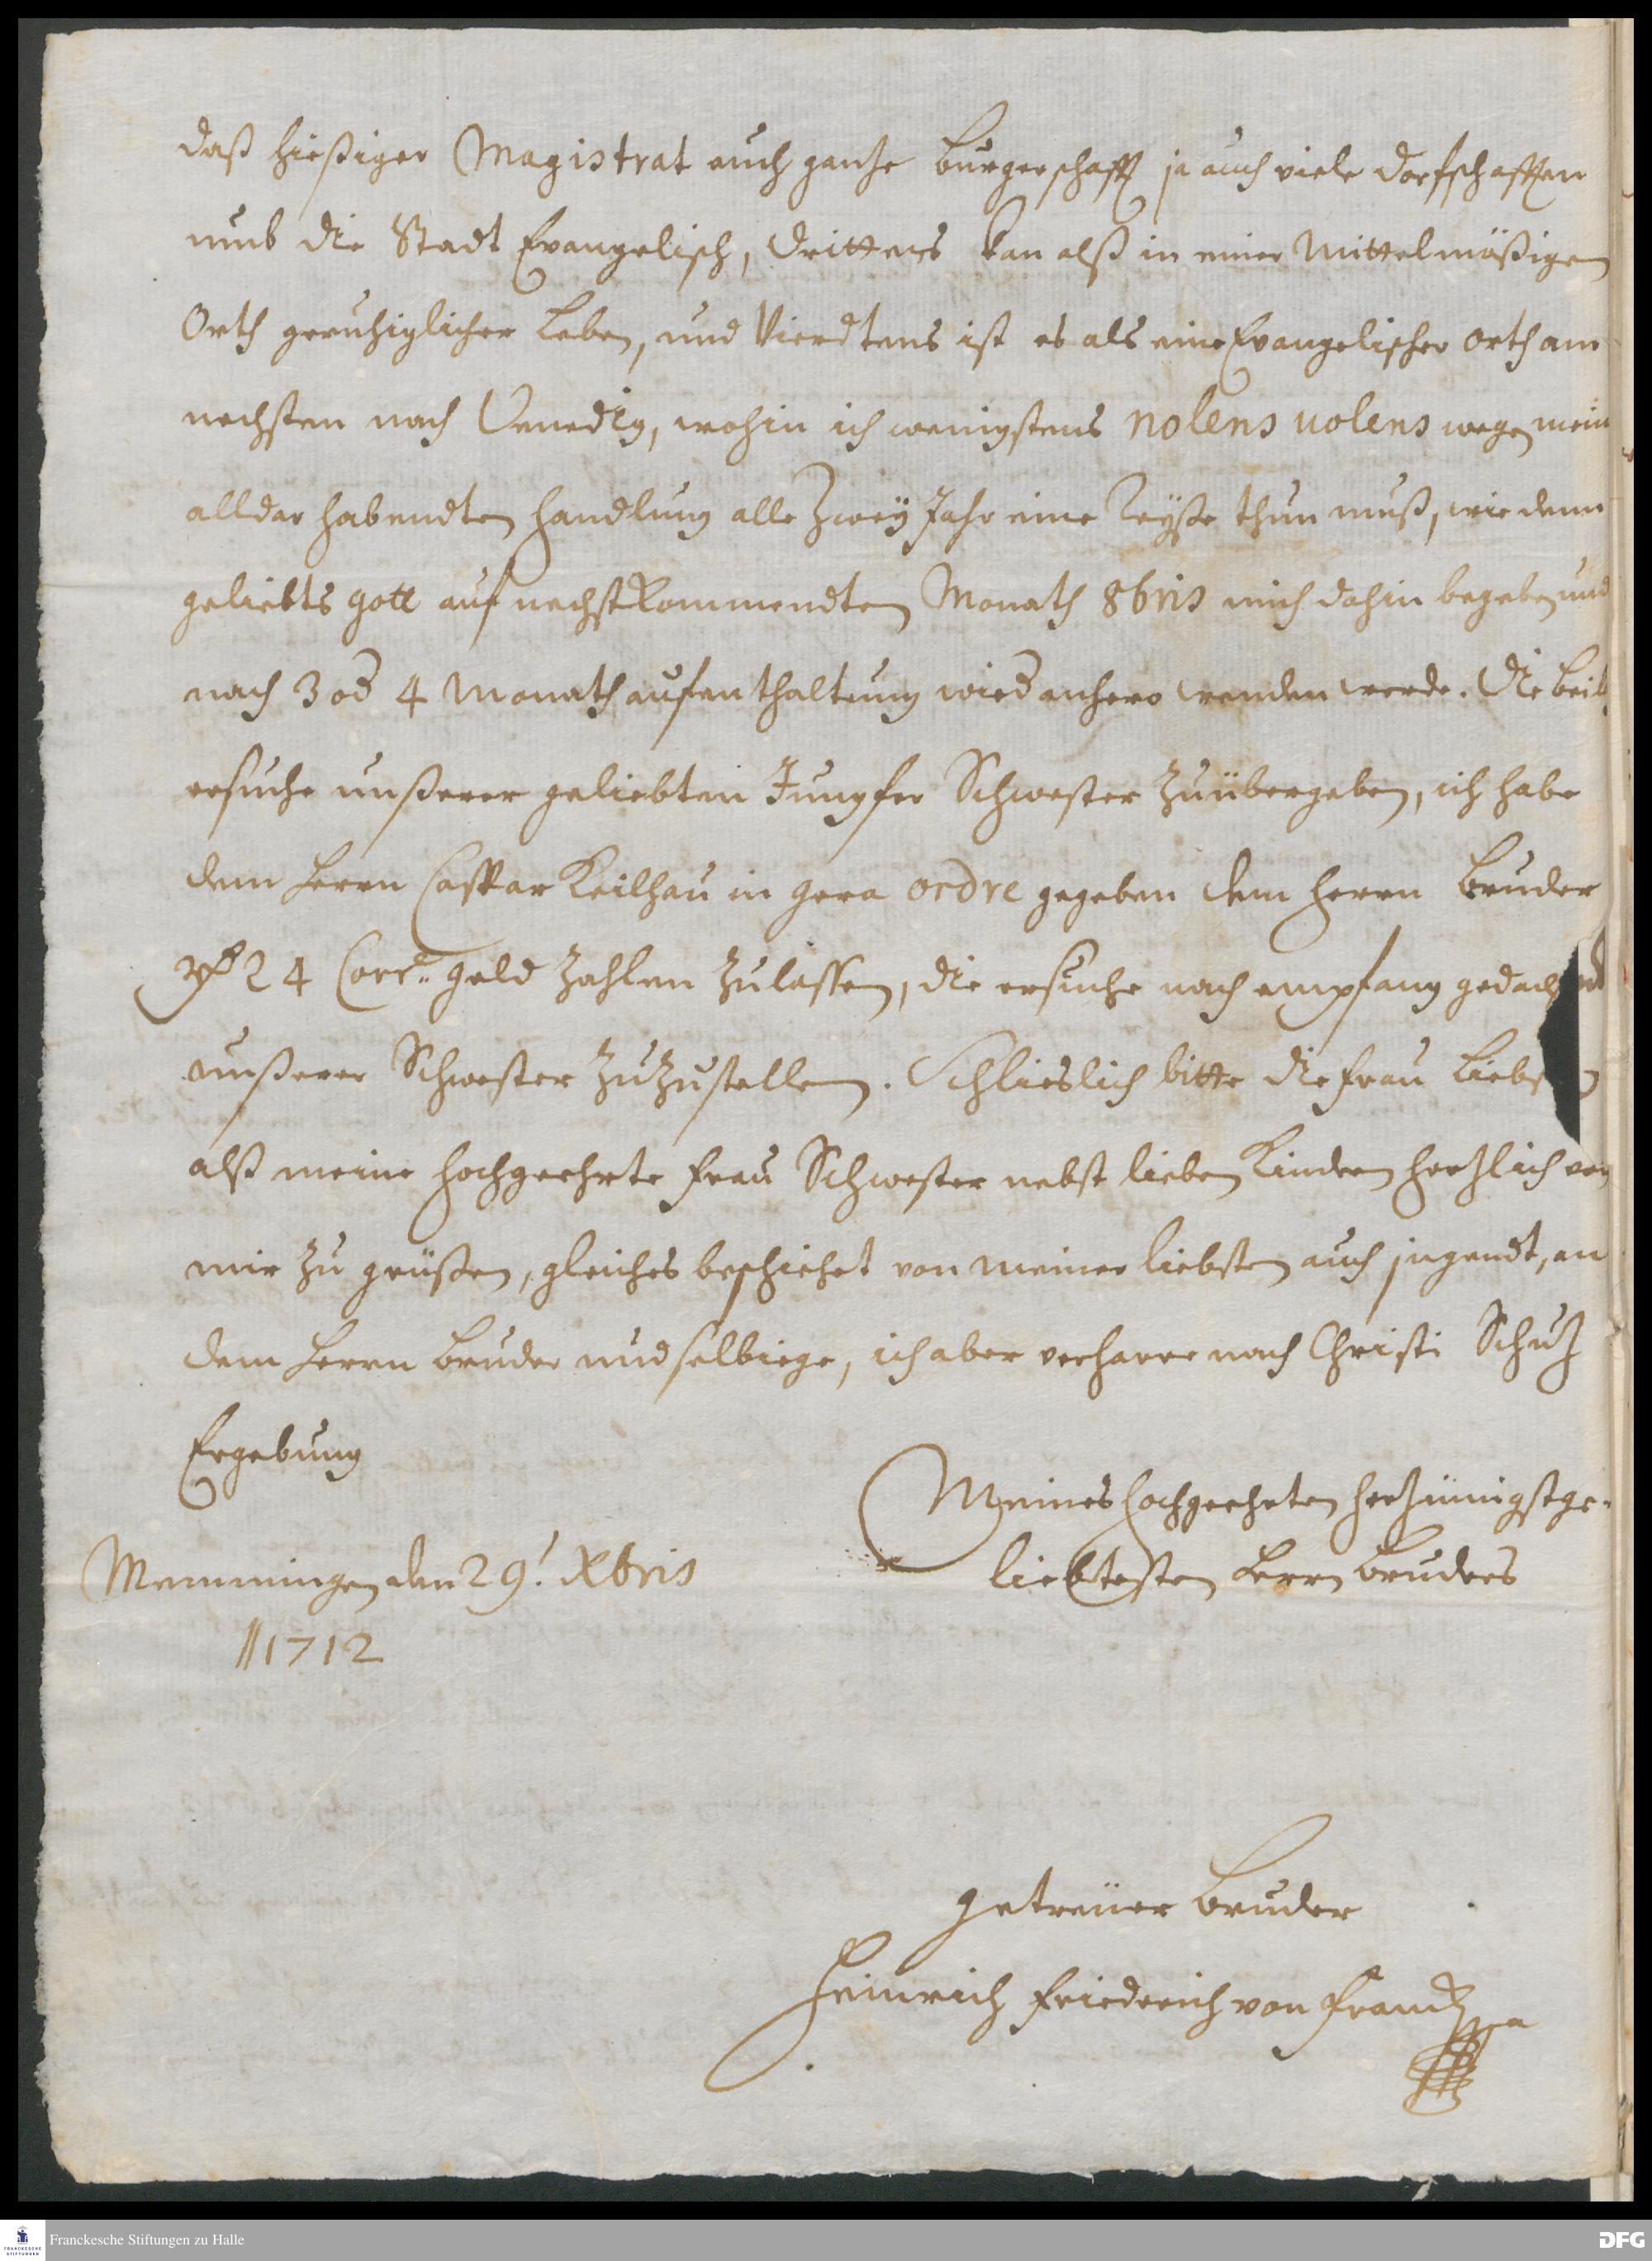 daß hießiger Magistrat auch gantze Burgerschafft ja auch viele dorfschafften
umb die Stadt Evangelisch, drittens kan alß in einer Mittelmäßigen
Orth geruhiglicher Leben, und Vierdtens ist es als eine Evangelischer orth am
nechsten nach Venedig, wohin ich wenigstens nolens uolens wegen mein
alldar habendten handlung alle Zweÿ Jahr eine Reÿße thun muß, wie denn
geliebts gott auf nechstkommendten Monath 8bris mich dahin begeben und
nach 3 od 4 Monath aufenthaltung wied anhero wenden werde. Die beil
ersuche unßerer geliebten Jungfer Schwester Zuübergeben, ich habe
dem Herrn Caspar Keilhau in gera ordre gegeben dem Herrn Bruder
24 Corr. geld Zahlen Zulassen, die ersuche nach empfang
unßerer Schwester ZuZustellen. Schlieslich bitte die frau
alß meine hochgeehrte frau Schwester nebst lieben Kindern hertzlich von
mir Zu grüßen, gleiches beschiehet von meiner liebsten auch jugendt, an
dem Herrn Bruder und selbiege, ich aber verharre nach Christi Schutz
Ergebung
Meines hochgeehrten hertzinnigstge-
liebtesten Herrn Bruders
Memmingen den 29. Xbris
1712
getreüer Bruder
Heinrich Friederich von
Franckesche Stiftungen zu Halle
FRANCKESCHE STIFTUNGEN
DFG